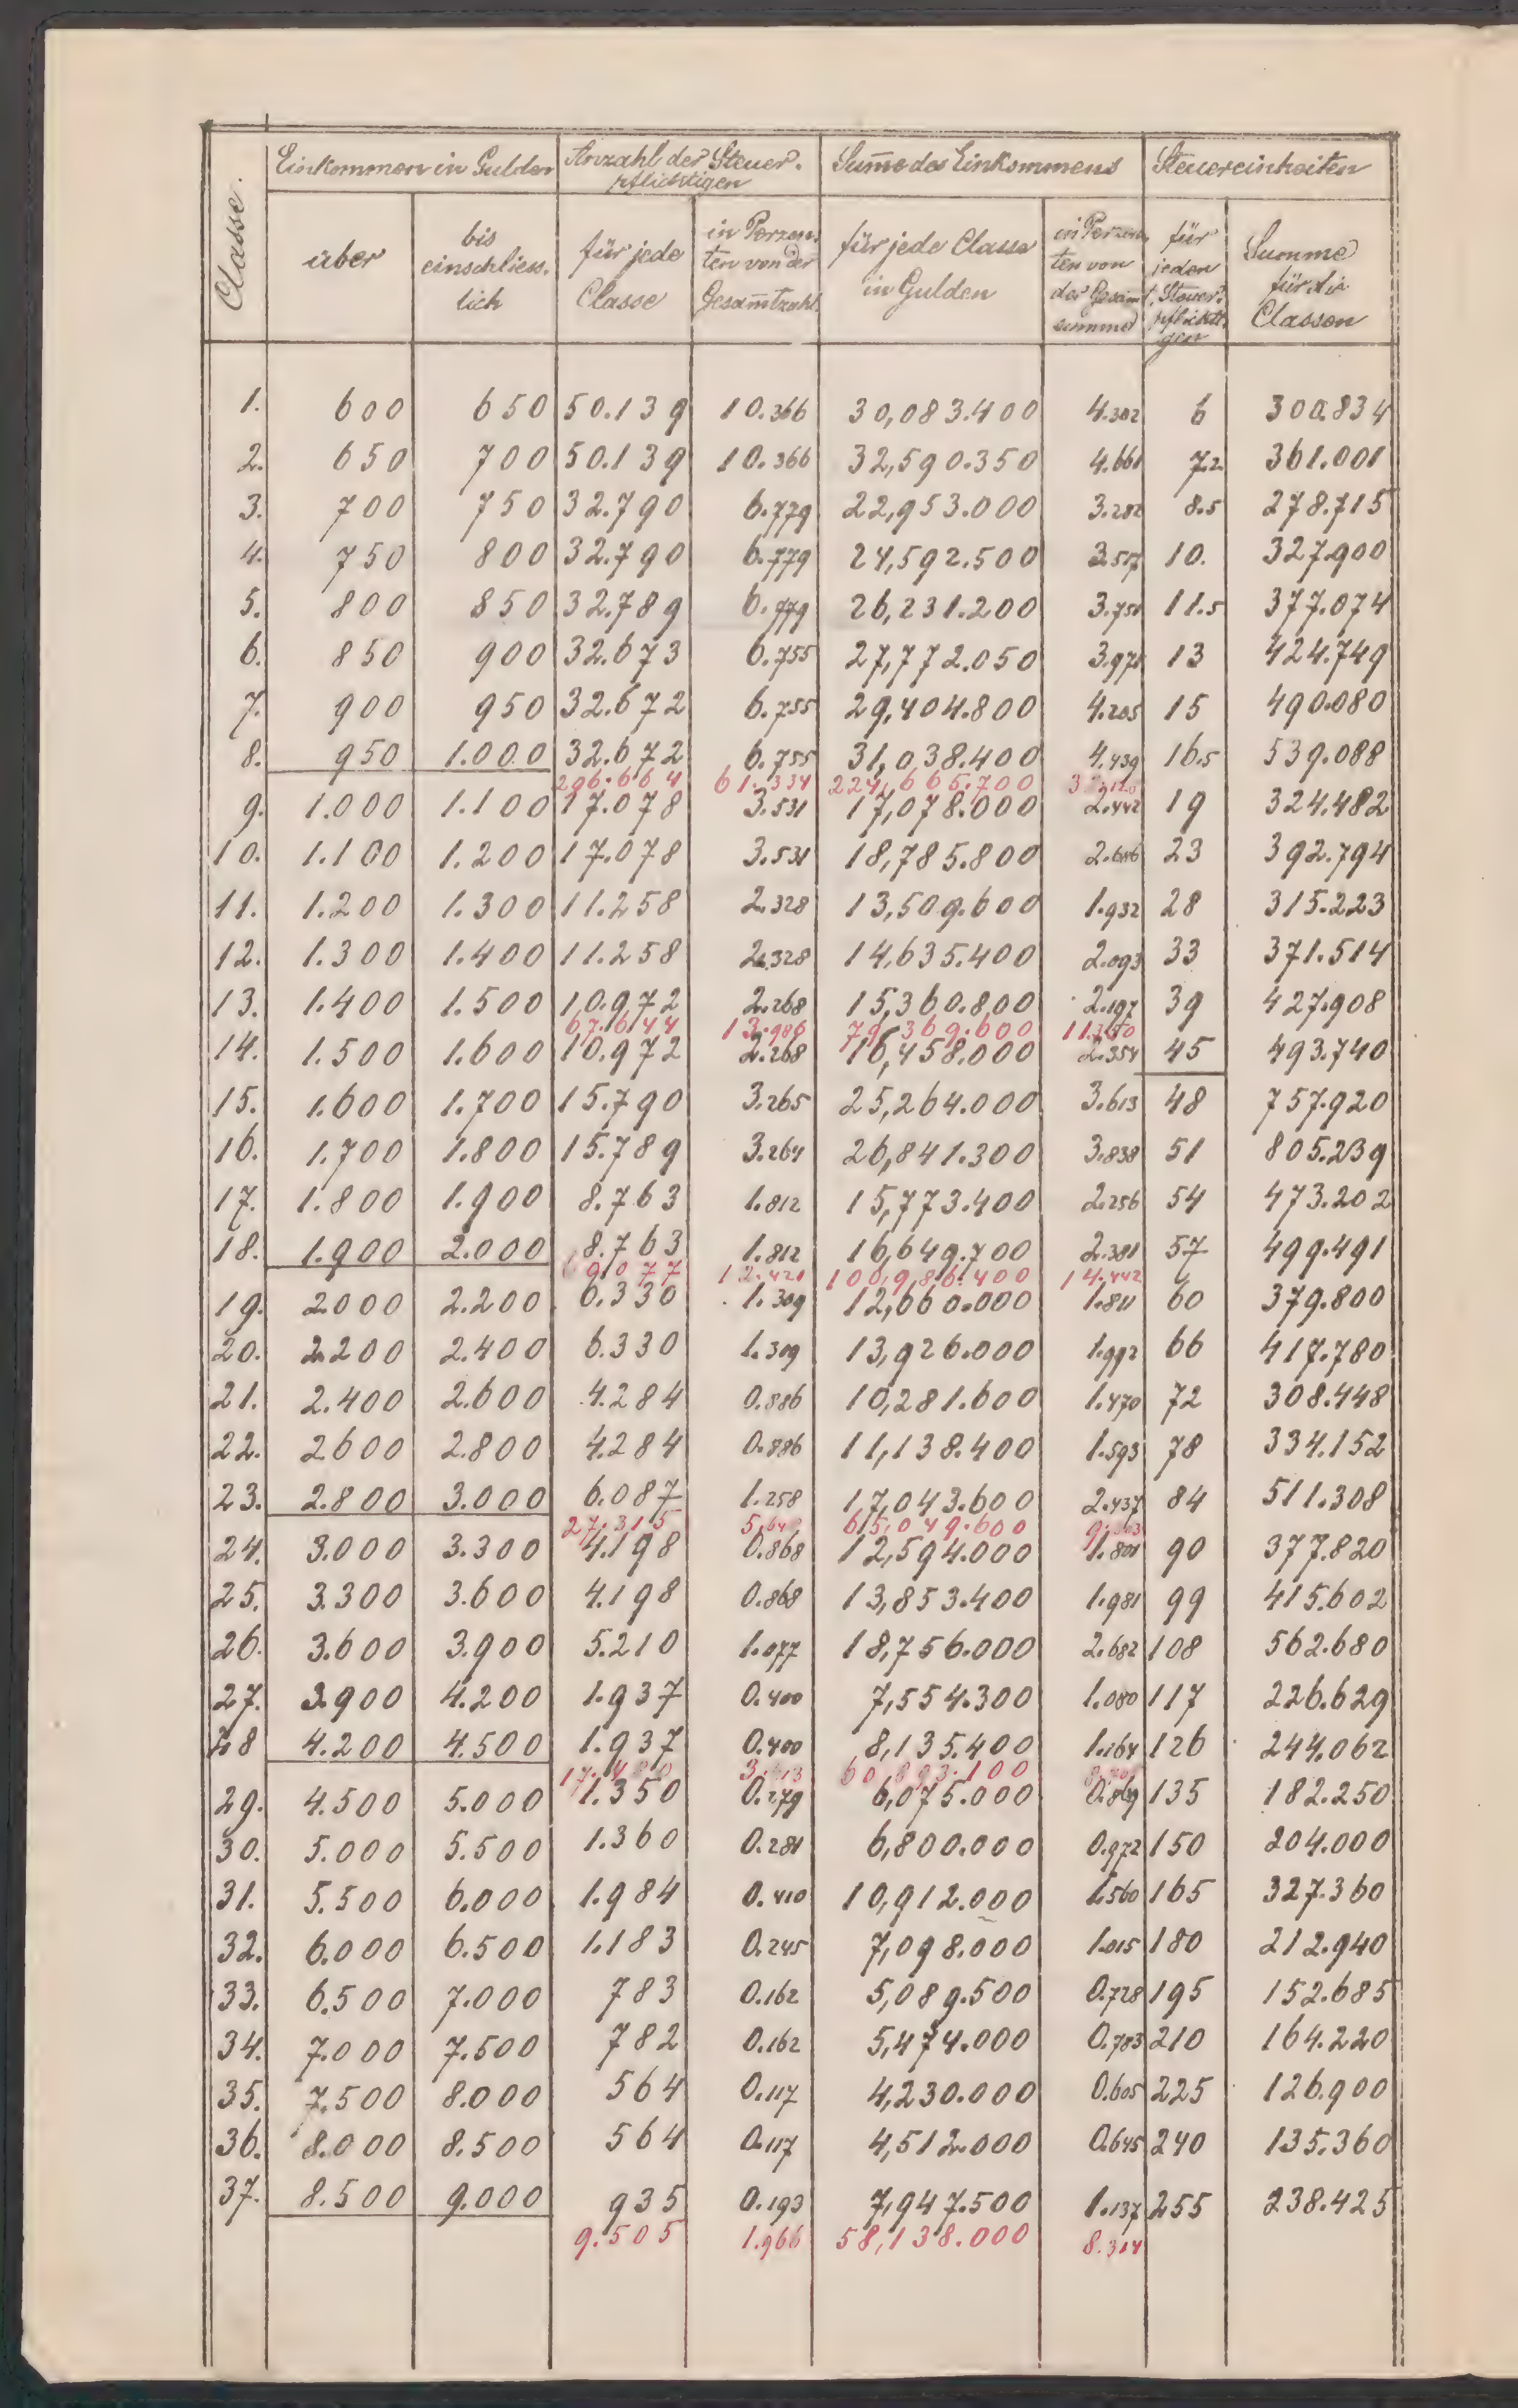 Classe.
Einkommen in Gulden
Anzahl der Steuer-
pflichtigen
Sume des Einkommens
Steuereinheiten
über
bis
einschliess-
lich
für jede
Classe
in Perzen-
ten von der
Gesamtzahl.
für jede Classe
in Gulden
in Perzen-
ten von
der Gesamt-
summe
für
jeden
Steuer-
pflichti-
gen
Summe
für die
Classen
1. 600 650 50.139 10.366 30,083.400 4.302 6 300.834
2. 650 700 50.139 10.366 32,590.350 4.661 7.2 361.001
3. 700 750 32.790 6.779 22,953.000 3.282 8.5 278.715
4. 750 800 32.790 6.779 24,592.500 3.517 10. 327.900
5. 800 850 32.789 6.779 26,231.200 3.751 11.5 377.074
6. 850 900 32.673 6.755 27,772.050 3.971 13 424.749
7. 900 950 32.672 6.755 29,404.800 4.205 15 490.080
8. 950 1.000 32.672 6.755 31,038.400 4.439 16.5 539.088
296.664 61.334 224,665.700
9. 1.000 1.100 17.078 3.531 17,078.000 2.442 19 324.482
10. 1.100 1.200 17.078 3.531 18,785.800 2.686 23 392.794
11. 1.200 1.300 11.258 2.328 13,509.600 1.932 28 315.223
12. 1.300 1.400 11.258 2.328 14,635.400 2.093 33 371.514
13. 1.400 1.500 10.972 2.268 15,360.800 2.197 39 427.908
67.644 13.986 79,369.600 11.350
14. 1.500 1.600 10.972 2.268 16,458.000 2.354 45 493.740
15. 1.600 1.700 15.790 3.265 25,264.000 3.613 48 757.920
16. 1.700 1.800 15.789 3.264 26,841.300 3.838 51 805.239
17. 1.800 1.900 8.763 1.812 15,773.400 2.256 54 473.202
18. 1.900 2.000 8.763 1.812 16,649.700 2.381 57 499.491
69077 12.421 100,986.400 14.442
19. 2000 2.200 6.330 1.309 12,660.000 1.811 60 379.800
20. 2.200 2.400 6.330 1.309 13,926.000 1.992 66 417.780
21. 2.400 2.600 4.284 0.886 10,281.600 1.470 72 308.448
22. 2600 2.800 4.284 0.886 11,138.400 1.593 78 334.152
23. 2.800 3.000 6.087 1.258 17,043.600 2.437 84 511.308
27.315 5.648 65,049.600 9.303
24. 3.000 3.300 4.198 0.868 12,594.000 1.801 90 377.820
25. 3.300 3.600 4.198 0.868 13,853.400 1.981 99 415.602
26. 3.600 3.900 5.210 1.077 18,756.000 2.682 108 562.680
27. 3.900 4.200 1.937 0.400 7,554.300 1.080 117 226.629
28 4.200 4.500 1.937 0.400 8,135.400 1.164 126 244.062
17.480 3.613 60,893.100
29. 4.500 5.000 1.350 0.279 6,075.000 0.869 135 182.250
30. 5.000 5.500 1.360 0.281 6,800.000 0.972 150 204.000
31. 5.500 6.000 1.984 0.410 10,912.000 1.560 165 327.360
32. 6.000 6.500 1.183 0.245 7,098.000 1.015 180 212.940
33. 6.500 7.000 783 0.162 5,089.500 0.728 195 152.685
34. 7.000 7.500 782 0.162 5,474.000 0.783 210 164.220
35. 7.500 8.000 564 0.117 4,230.000 0.605 225 126.900
36. 8.000 8.500 564 0.117 4,512.000 0.645 240 135.360
37. 8.500 9.000 935 0.193 7,947.500 1.137 255 238.425
9.505 1.966 58,138.000 8.314